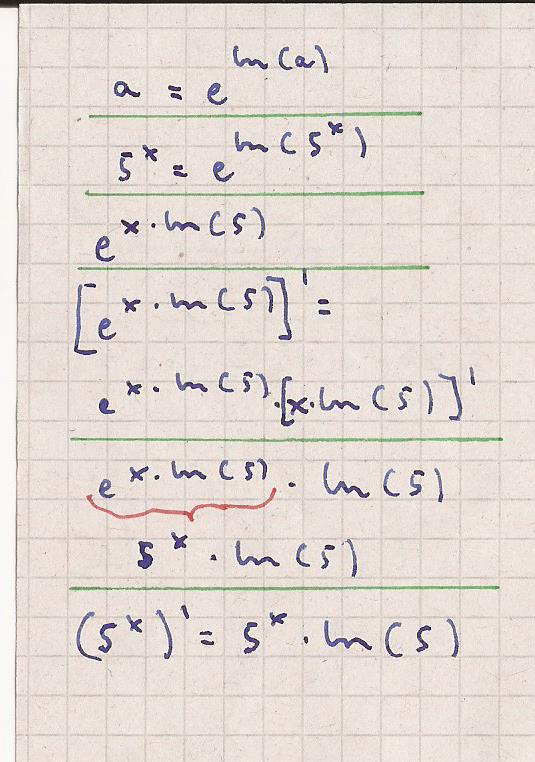 a = e^ln(a)
5^x = e^ln(5^x)
e^x·ln(5)
[e^x·ln(5)]' =
e^x·ln(5)·[x·ln(5)]'
e^x·ln(5) · ln(5)
5^x · ln(5)
(5^x)' = 5^x · ln(5)